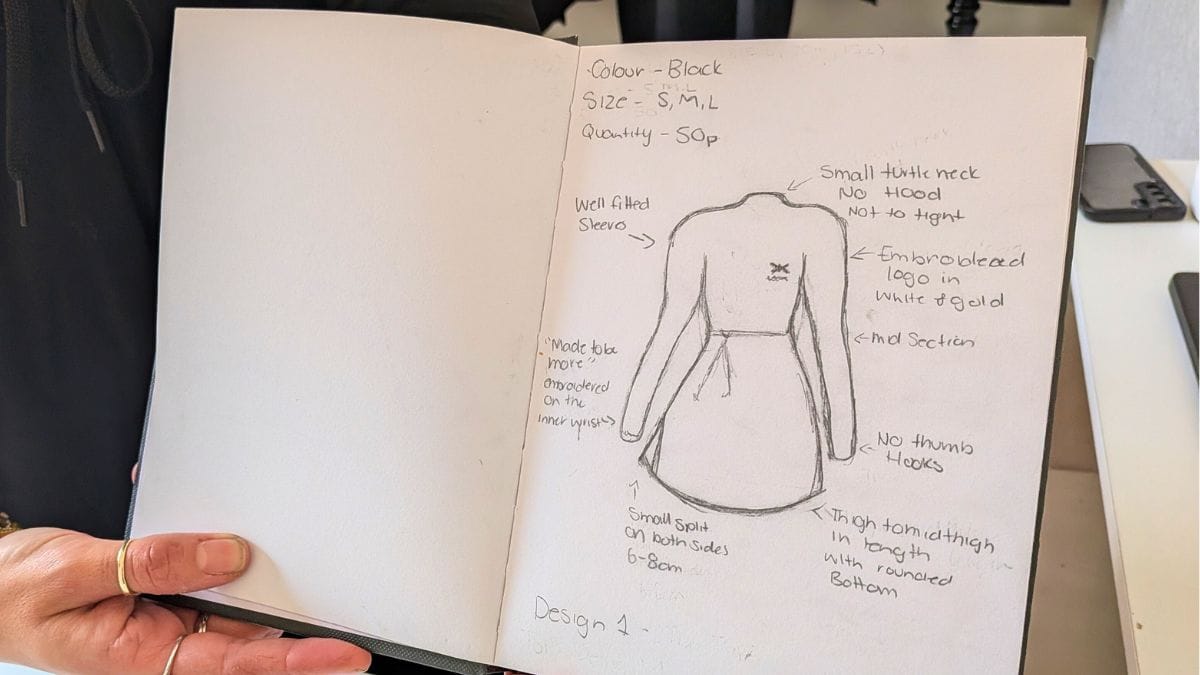 Colour - Black
Size - S, M, L
Quantity - 50p
Small turtle neck
No Hood
Not to tight
Well fitted
Sleeves
Embroidered
logo in
white & gold
"Made to be
more"
embroidered
on the
inner wrist
Mid Section
No thumb
Hooks
Small split
on both sides
6-8cm
Thigh to midthigh
in length
with rounded
Bottom
Design 1 -